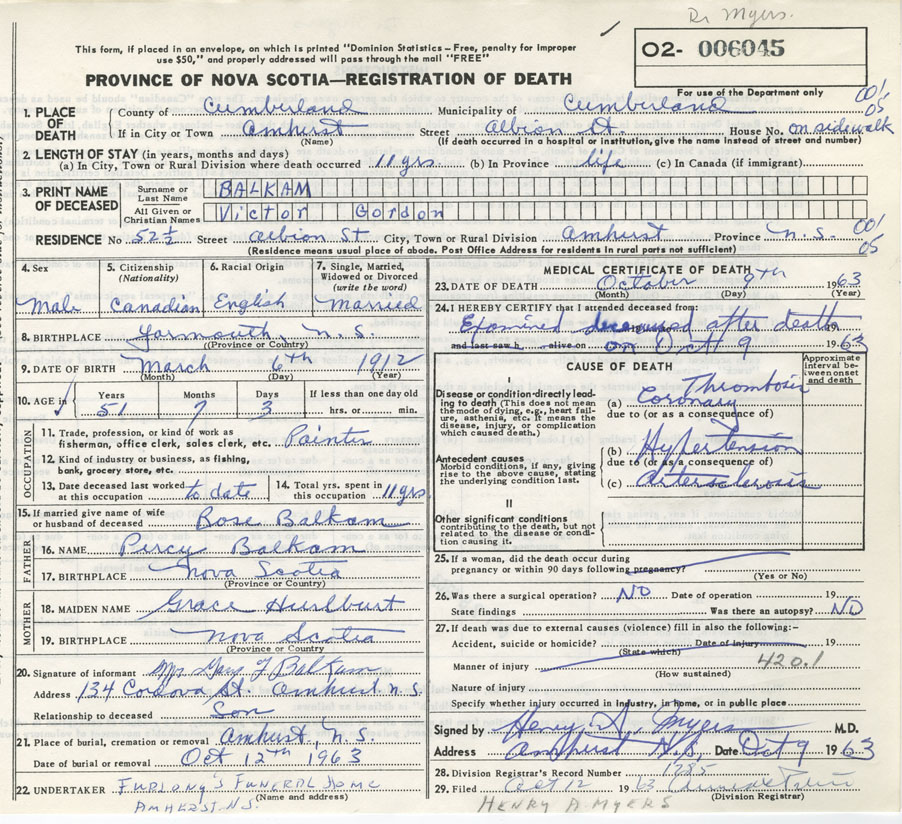 Dr Myers.
This form, if placed in an envelope, on which is printed "Dominion Statistics – Free, penalty for improper
use $50," and properly addressed will pass through the mail "FREE"
O2- 006045
PROVINCE OF NOVA SCOTIA—REGISTRATION OF DEATH
For use of the Department only
1. PLACE OF DEATH County of Cumberland Municipality of Cumberland 001/05
If in City or Town Amhurst Street Albion St. House No. on sidewalk
(Name) (If death occurred in a hospital or institution, give the name instead of street and number)
2. LENGTH OF STAY (in years, months and days)
(a) In City, Town or Rural Division where death occurred 11 yrs (b) In Province life (c) In Canada (if immigrant)
3. PRINT NAME OF DECEASED Surname or Last Name BALKAM
All Given or Christian Names Victor Gordon
RESIDENCE No. 52½ Street Albion St City, Town or Rural Division Amhurst Province N.S. 001/05
(Residence means usual place of abode. Post Office Address for residents in rural parts not sufficient)
4. Sex 5. Citizenship (Nationality) 6. Racial Origin 7. Single, Married, Widowed or Divorced (write the word)
Male Canadian English Married
8. BIRTHPLACE Yarmouth, N.S.
(Province or Country)
9. DATE OF BIRTH March 6th 1912
(Month) (Day) (Year)
10. AGE in Years Months Days If less than one day old
51 7 3 hrs. or min.
OCCUPATION
11. Trade, profession, or kind of work as
fisherman, office clerk, sales clerk, etc. Painter
12. Kind of industry or business, as fishing,
bank, grocery store, etc.
13. Date deceased last worked at this occupation to date 14. Total yrs. spent in this occupation 11 yrs
15. If married give name of wife or husband of deceased Rose Balkam
FATHER
16. NAME Percy Balkam
17. BIRTHPLACE Nova Scotia
(Province or Country)
MOTHER
18. MAIDEN NAME Grace Hurlburt
19. BIRTHPLACE Nova Scotia
(Province or Country)
20. Signature of informant Balkam
Address 134 Cordova St. Amhurst N.S.
Relationship to deceased Son
21. Place of burial, cremation or removal Amhurst, N.S.
Date of burial or removal Oct 12th 1963
22. UNDERTAKER Furlong's Funeral Home
(Name and address)
Amherst N.S.
MEDICAL CERTIFICATE OF DEATH
23. DATE OF DEATH October 9th 1963
(Month) (Day) (Year)
24. I HEREBY CERTIFY that I attended deceased from:
Examined deceased after death 19
and last saw h alive on on Oct 9 1963
CAUSE OF DEATH Approximate Interval between onset and death
I
Disease or condition directly leading to death (This does not mean the mode of dying, e.g., heart failure, asthenia, etc. It means the disease, injury, or complication which caused death.)
(a) Coronary Thrombosis
due to (or as a consequence of)
Antecedent causes
Morbid conditions, if any, giving rise to the above cause, stating the underlying condition last.
(b) Hypertension
due to (or as a consequence of)
(c) Arteriosclerosis
II
Other significant conditions
contributing to the death, but not related to the disease or condition causing it.
25. If a woman, did the death occur during
pregnancy or within 90 days following pregnancy?
(Yes or No)
26. Was there a surgical operation? NO Date of operation 19
State findings Was there an autopsy? NO
27. If death was due to external causes (violence) fill in also the following:–
Accident, suicide or homicide? Date of injury 19
(State which)
Manner of injury 420.1
(How sustained)
Nature of injury
Specify whether injury occurred in industry, in home, or in public place
Signed by Henry A. Myers M.D.
Address Amhurst N.S. Date Oct 9 1963
28. Division Registrar's Record Number 1285
29. Filed Oct 12 1963
(Division Registrar)
HENRY A MYERS